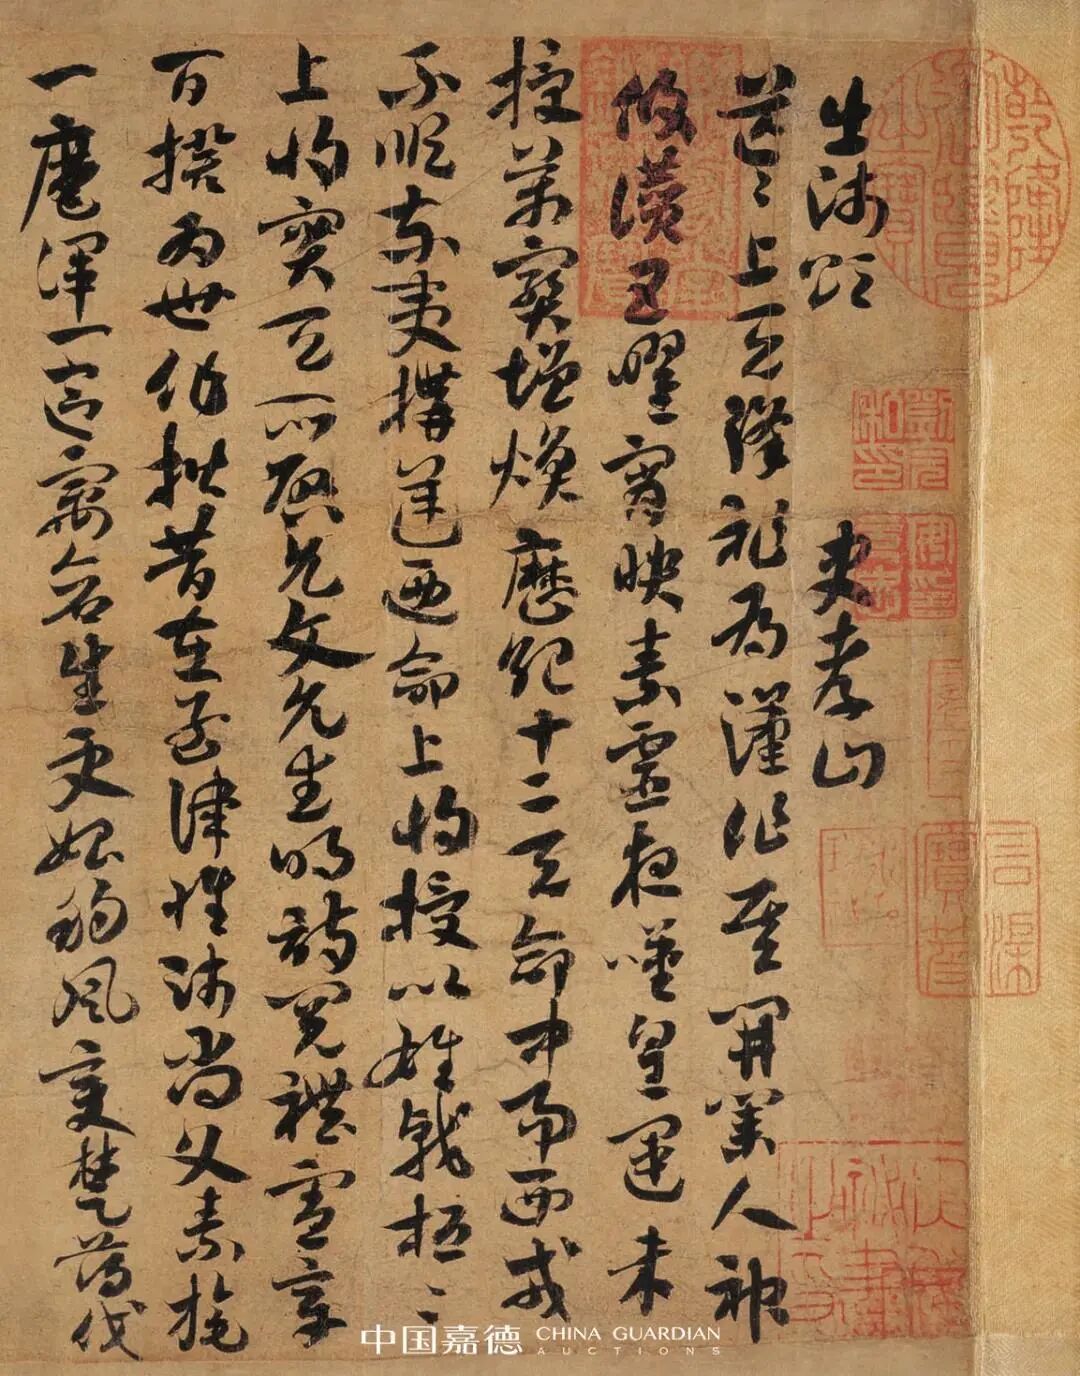 出師頌 史孝山
茫〻上天降祚為漢作基開業人神
攸讚五曜宵映素靈夜嘆皇運未
授萬寶增煥歷紀十二天命中易西戎
不順東夷構逆迺命上將授以雄戟桓〻
上將寔天所啟允文允武明詩閱禮憲章
百揆為世作楷昔在孟津惟師尚父素旄
一麾渾一區宇蒼生更始朔風變楚薄伐
中国嘉德 CHINA GUARDIAN
AUCTIONS